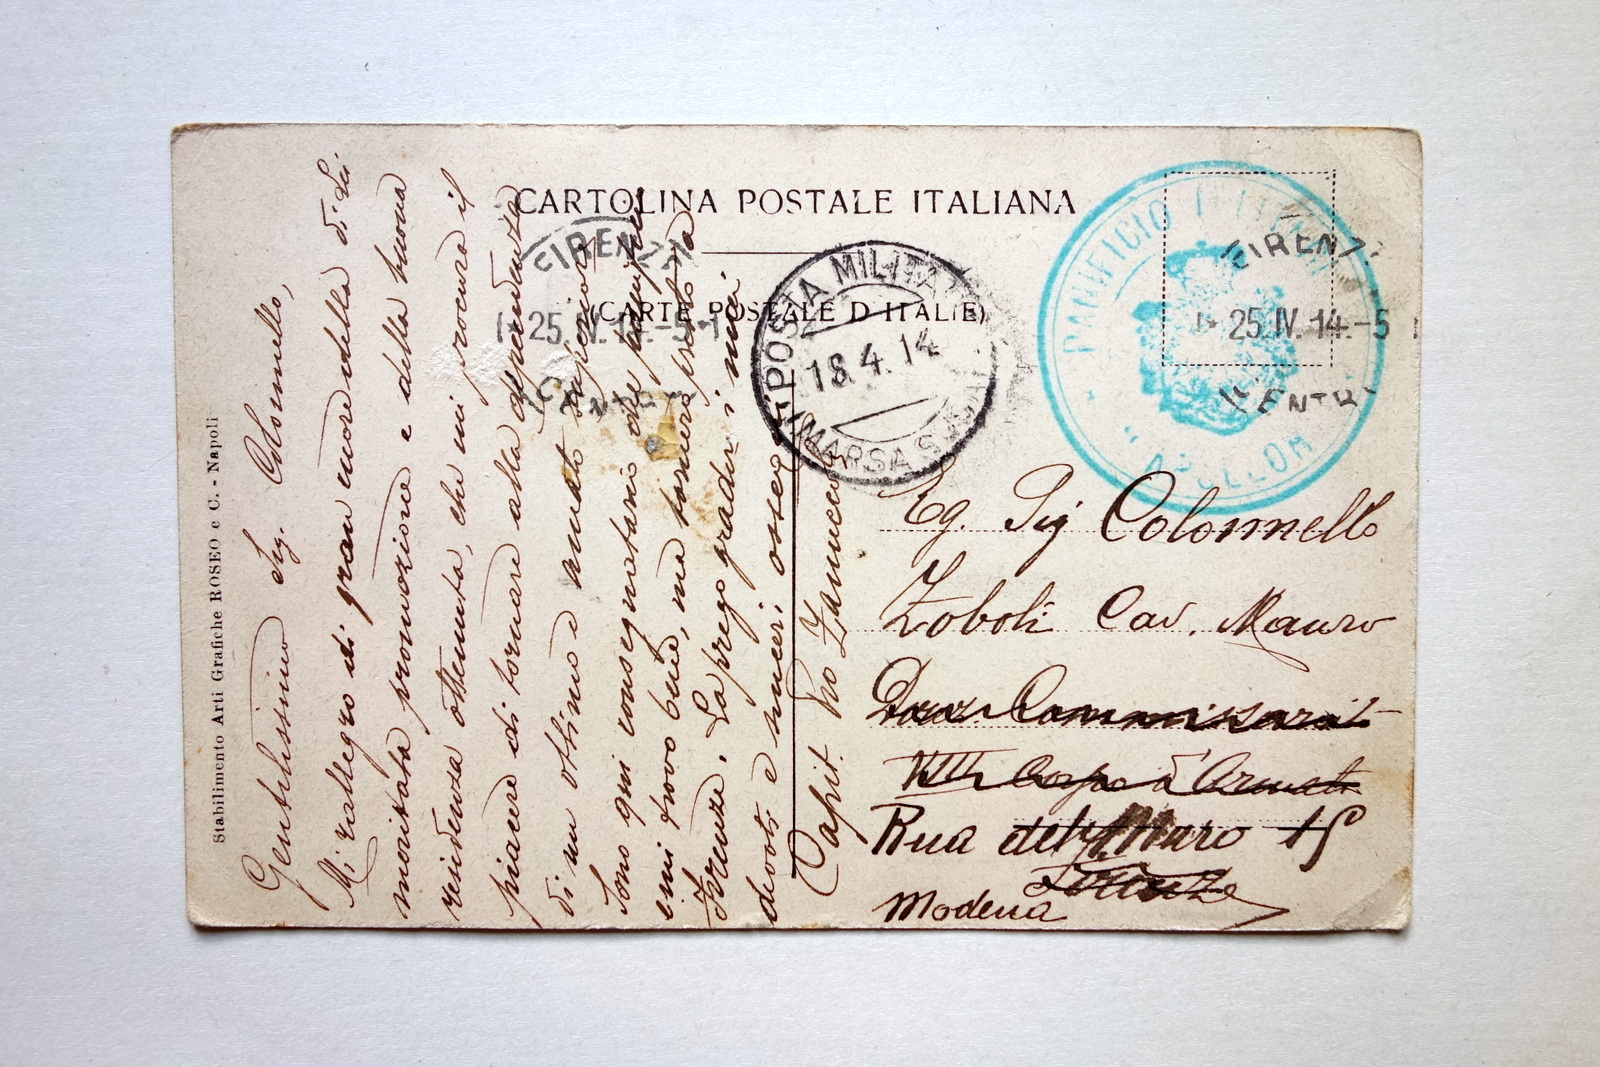 CARTOLINA POSTALE ITALIANA
(CARTE POSTALE D'ITALIE)
Stabilimento Arti Grafiche ROSEO e C. - Napoli
Gentilissimo Sig. Colonnello,
Mi rallegro di gran cuore della di Lei
meritata promozione e della buona
residenza ottenuta, che mi procura il
piacere di tornare alla dipendenza
di un ottimo e amato superiore.
Sono qui consegnatario del panificio
e mi trovo bene, ma tornerò presto a
Firenze. La prego gradire i miei
devoti e sinceri ossequi
Capit. Pio Zanucco
FIRENZE
25.IV.14.-5
CENTRO
POSTA MILITARE
18.4.14
MARSA SUSA
PANIFICIO MILITARE
APOLLONIA
FIRENZE
25.IV.14.-5
CENTRO
Eg. Sig Colonnello
Zoboli Cav. Mauro
Commissariat
VIII Corpo d'Armata
Rua del Muro 15
Firenze
Modena